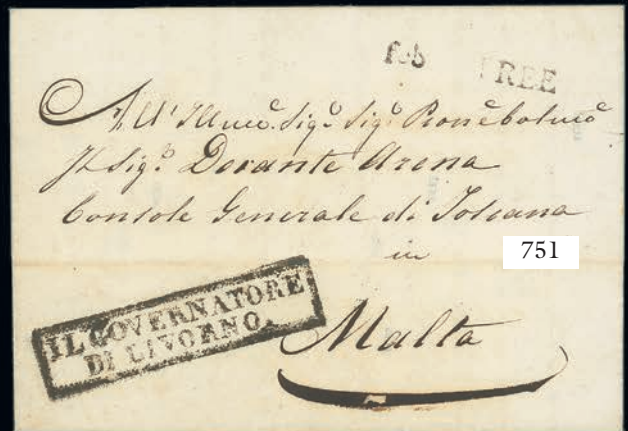 fob FREE
All' Illmo. Sigr. Sigr. Pron Colmo
Il Sigr. Dorante Arena
Console Generale di Toscana
in
751
IL GOVERNATORE
DI LIVORNO.
Malta